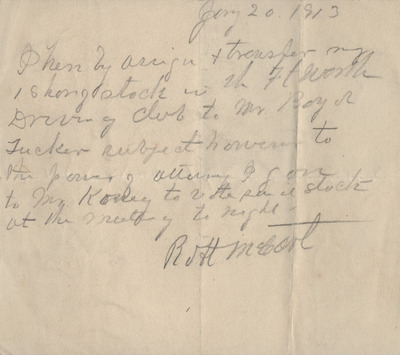 Jany 20. 1913
I hereby assign & transfer my
1 share stock in the Ft Worth
Driving Club to Mr Boyd
Tucker subject however to
the power of attorney I gave
to Mr to vote said stock
at the meeting to night -